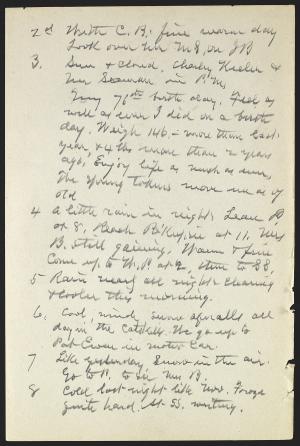 2d With C. B. fine warm day
Look over Mr M's on JB
3. Sun & cloud, Charley Keeler &
Mr Seaman in P.M.
My 76th birth day. Feel as
well as ever I did on a birth
day. Weigh 146, - more than last
year & 4 lbs more than 2 years
ago; Enjoy life as much as ever,
The young trees move me as of
old
4 A little rain in night; Leave P.
at 8, Reach Po'Keepsie at 11, Mrs
B. still gaining. Warm & fine
Come up to W.P. at 2, then to SS.
5 Rain nearly all night; clearing
& cooler this morning.
6. Cool, windy, snow squalls all
day in the Catskills. We go up to
in motor car.
7 Like yesterday. Snow in the air.
Go to P. to see Mrs B.
8 Cold last night like Nov. Froze
quite hard. At SS. writing.